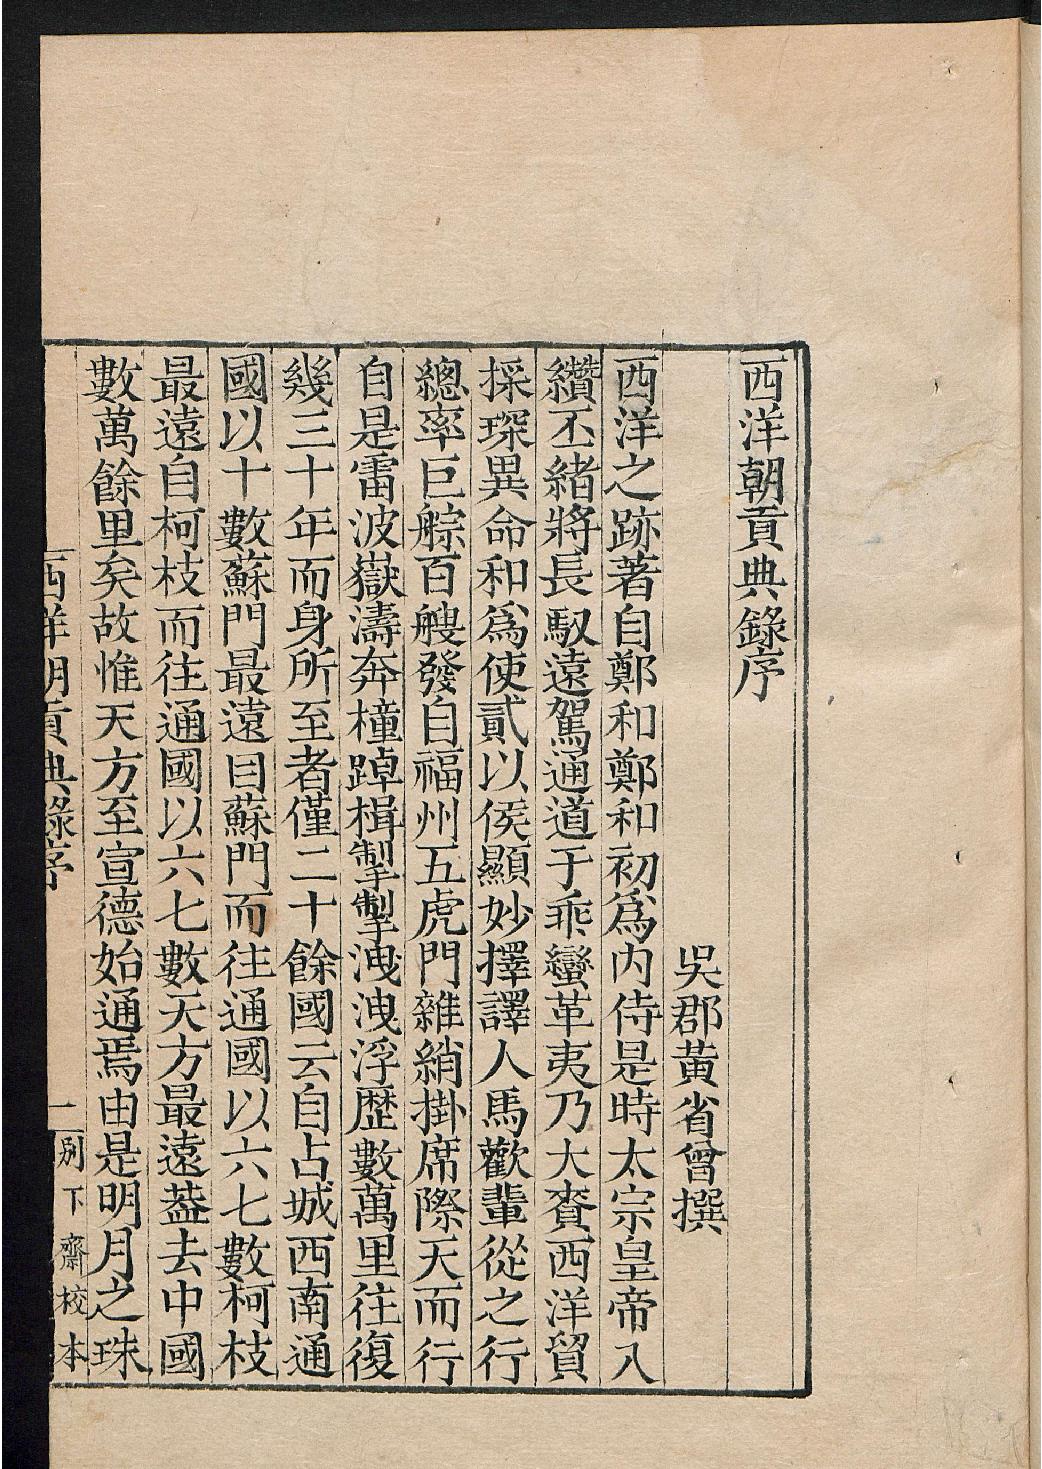 西洋朝貢典錄序
吳郡黃省曾撰
西洋之跡著自鄭和鄭和初爲內侍是時太宗皇帝入
纘丕緒將長馭遠駕通道于乖蠻革夷乃大賚西洋貿
採琛異命和爲使貳以侯顯妙擇譯人馬歡輩從之行
總率巨䑸百艘發自福州五虎門維綃掛席際天而行
自是雷波嶽濤奔橦踔楫掣掣洩洩浮歷數萬里往復
幾三十年而身所至者僅二十餘國云自占城西南通
國以十數蘇門最遠自蘇門而往通國以六七數柯枝
最遠自柯枝而往通國以六七數天方最遠葢去中國
數萬餘里矣故惟天方至宣德始通焉由是明月之珠
西洋朝貢典錄序
一
別下齋校本